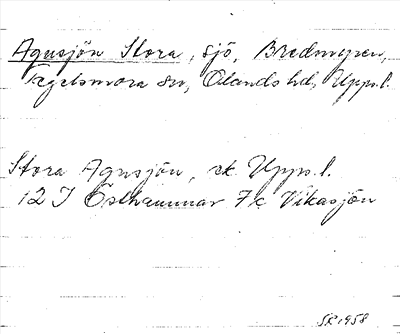 Agusjön Stora, sjö, Bredmyren,
Tegelsmora sn, Olands hd, Upps. l.
Stora Agusjön, ek Upps. l.
12 I Östhammar 7c Vikasjön
SR 1958